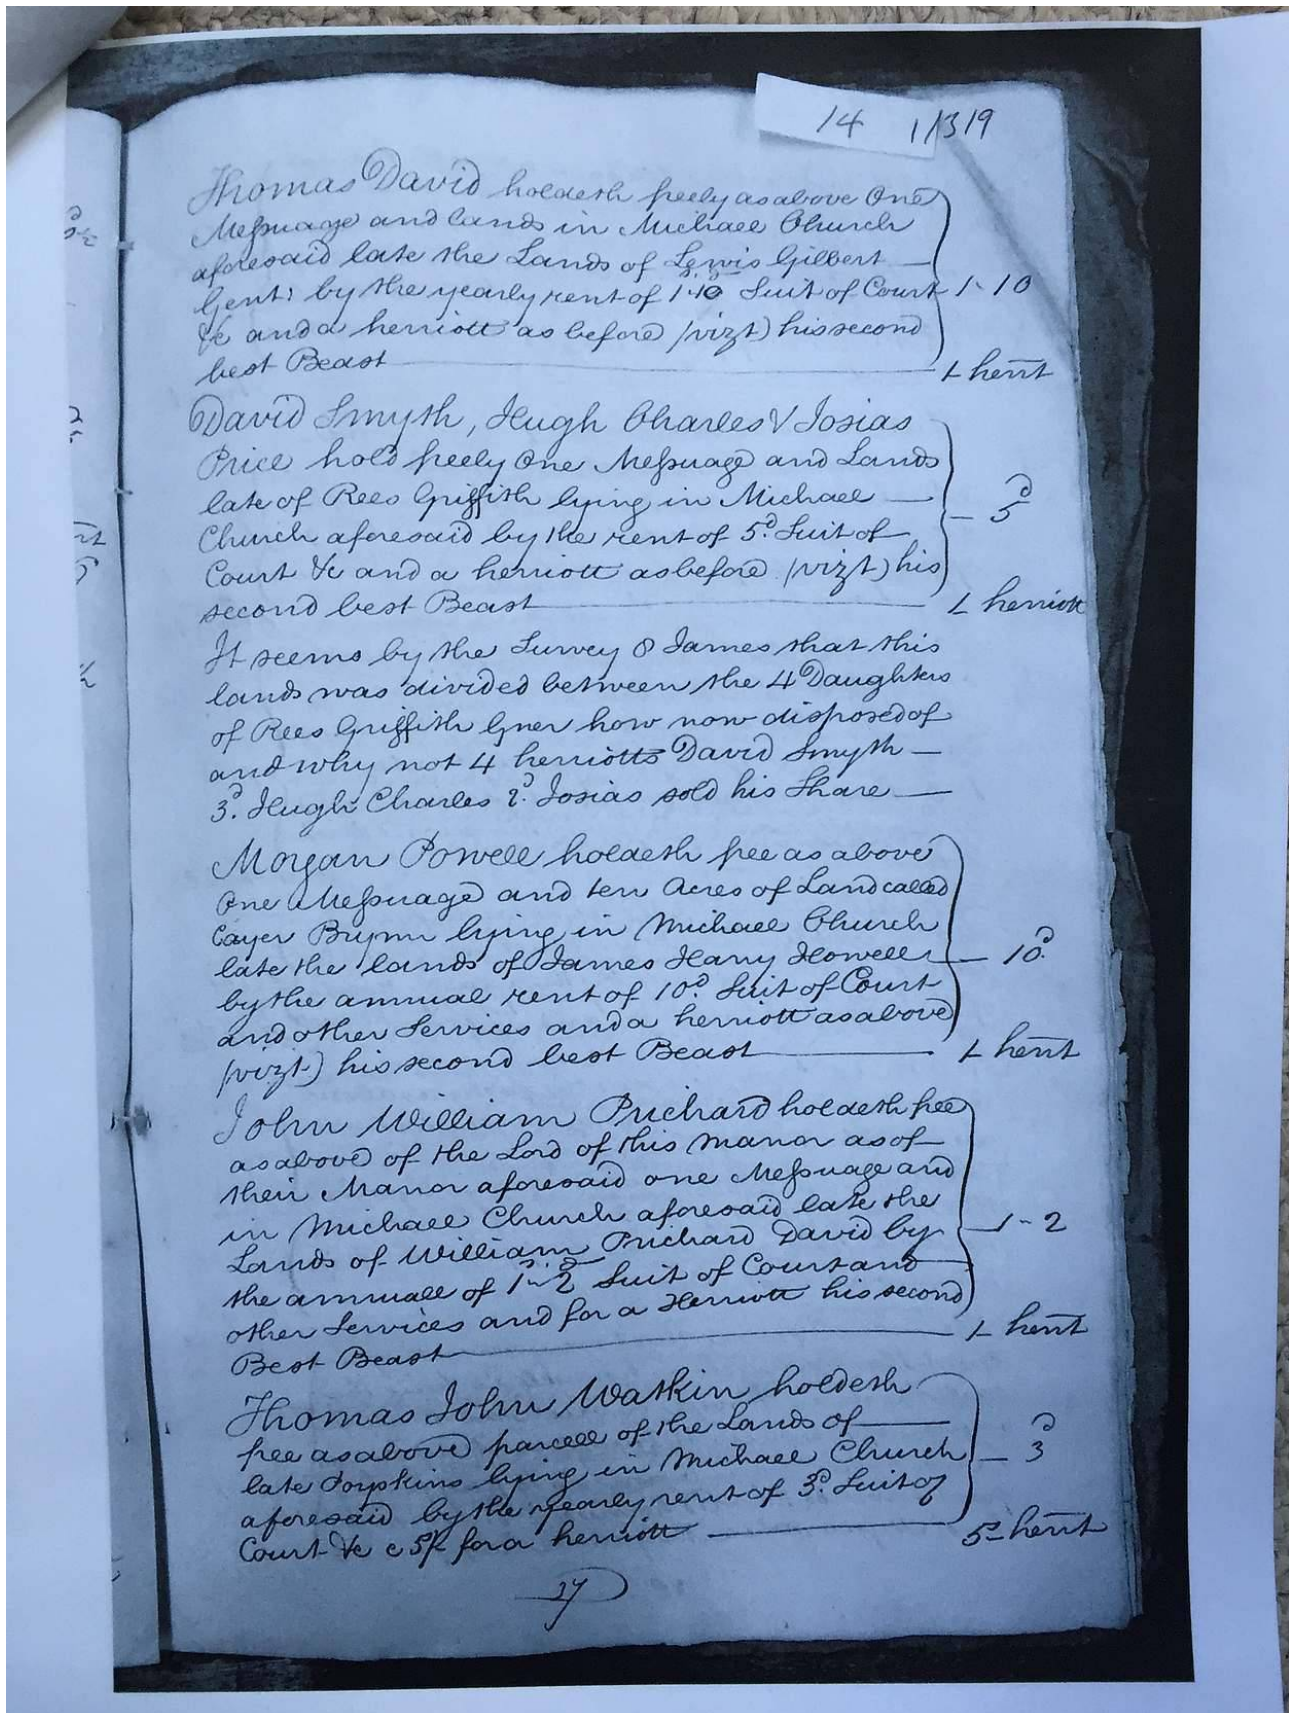 14 1/319
Thomas David holdeth freely as above One
Messuage and lands in Michaell Church
aforesaid late the Lands of Lewis Gilbert
Gent: by the yearly rent of 1s..10d Suit of Court 1 - 10
&c and a herriott as before (vizt) his second
best Beast 1 herrt
David Smyth, Hugh Charles & Josias
Price hold freely One Messuage and Lands
late of Rees Griffith lying in Michael
Church aforesaid by the rent of 5d. Suit of 5d
Court &c and a herriott as before (vizt) his
second best Beast 1 herriott
It seems by the Survey 8 James that this
lands was divided between the 4 Daughters
of Rees Griffith how now disposed of
and why not 4 herriotts David Smyth
3d. Hugh Charles 2d. Josias sold his Share
Morgan Powell holdeth free as above
One Messuage and ten Acres of Land called
Cayer Brynn lying in Michaell Church
late the lands of James Harry Howell 10d.
by the annual rent of 10d. Suit of Court
and other Services and a herriott as above
(vizt) his second best Beast 1 herrt
John William Prichard holdeth free
as above of the Lord of this manor as of
their Manor aforesaid one Messuage and
in Michaell Church aforesaid late the
Lands of William Prichard David by 1 - 2
the annuall of 1s..2d Suit of Court and
other Services and for a Herriott his second
Best Beast 1 herrt
Thomas John Watkin holdeth
free as above parcell of the Lands of
late lying in Michaell Church 3d
aforesaid by the yearly rent of 3d. Suit of
Court &c 5/- for a herriott 5s herrt
37